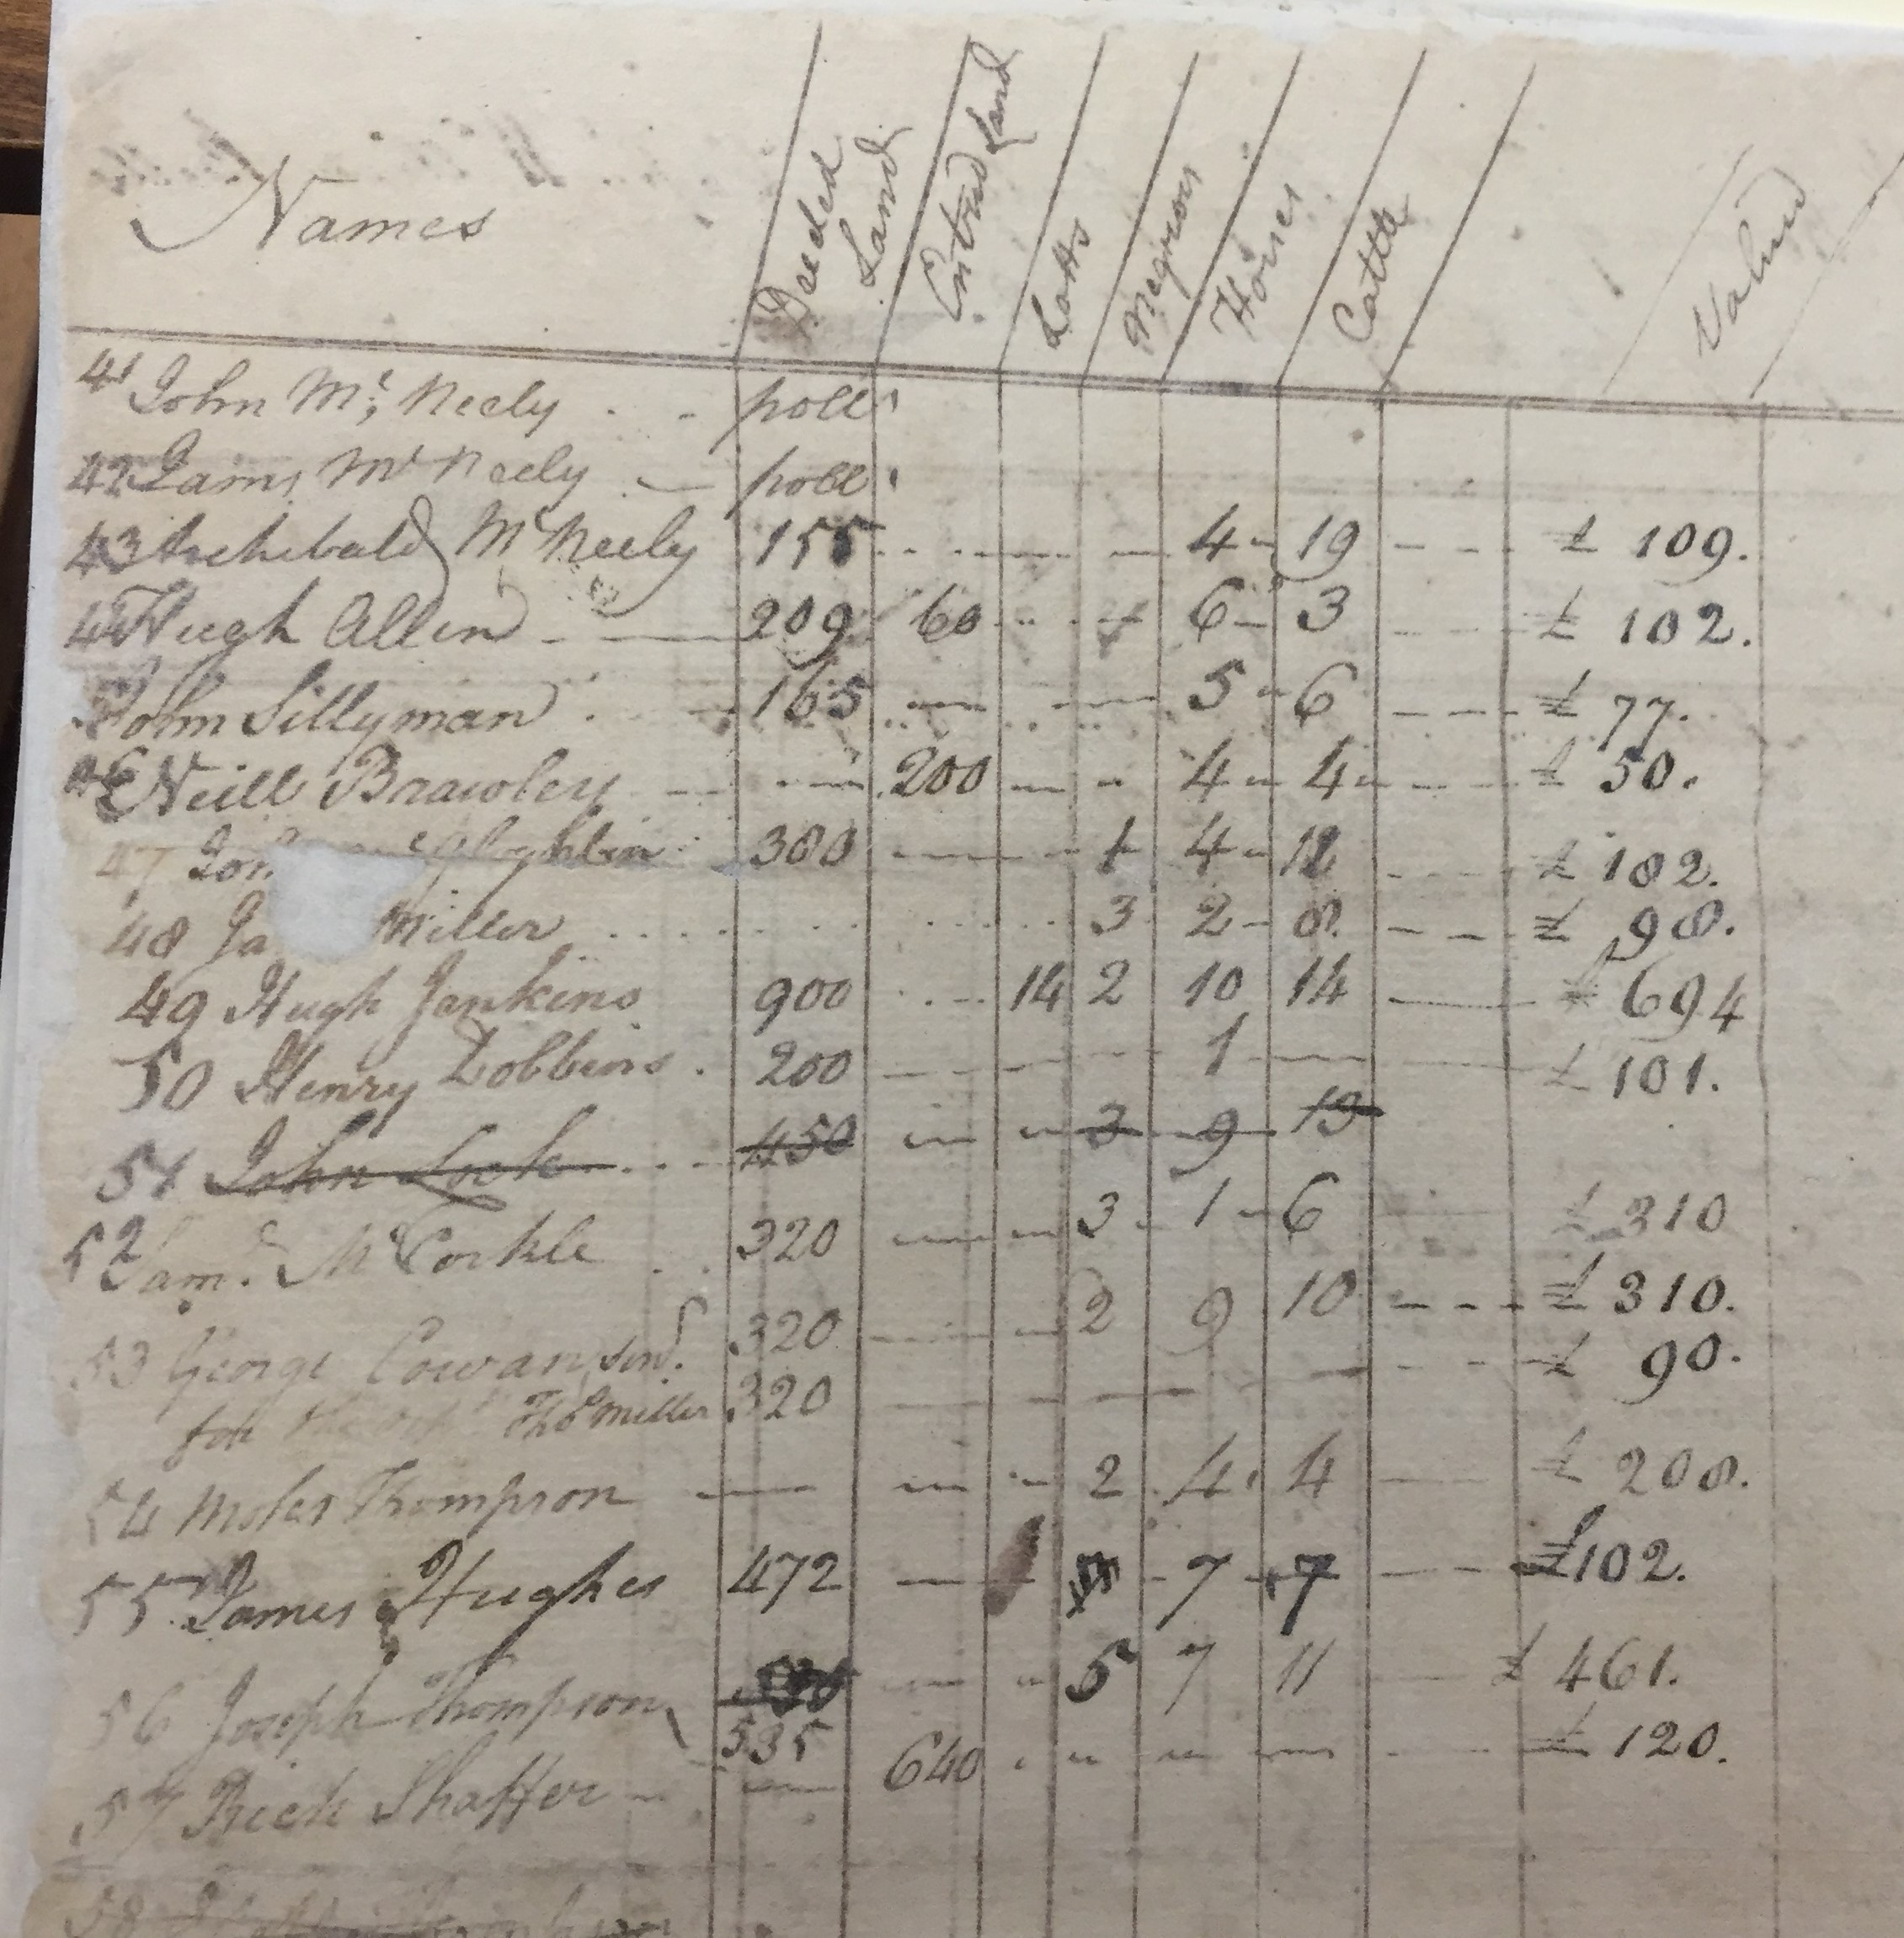 Names Deeded Land Entred Land Lotts Negroes Horses Cattle Valued
41 John Mc Neely . . poll
42 James Mc Neely . — poll
43 Archibald Mc Neely 155 4 - 19 £ 109.
Hugh Allen 209 60 6 - 3 £ 102.
John Sillyman 165 5 - 6 £ 77.
Neill Brawley 200 4 - 4 £ 50.
47 300 1 4 - 12 £ 182.
48 Ja Miller 3 2 - 8 £ 98.
49 Hugh Jenkins 900 14 2 10 14 £ 694
50 Henry Dobbins . 200 1 £ 101.
51 John Lock 450 3 9 13
52 Sam. Mc Corkle 320 3 1 - 6 £ 310
53 George Cowan senr. 320 2 9 10 £ 310.
for Thos Miller 320 £ 90.
54 Moses Thompson 2 4 4 £ 208.
55 James Hughes 472 7 7 £ 102.
56 Joseph Thompson 5 7 11 £ 461.
535
57 Fried Shaffer 640 £ 120.
58